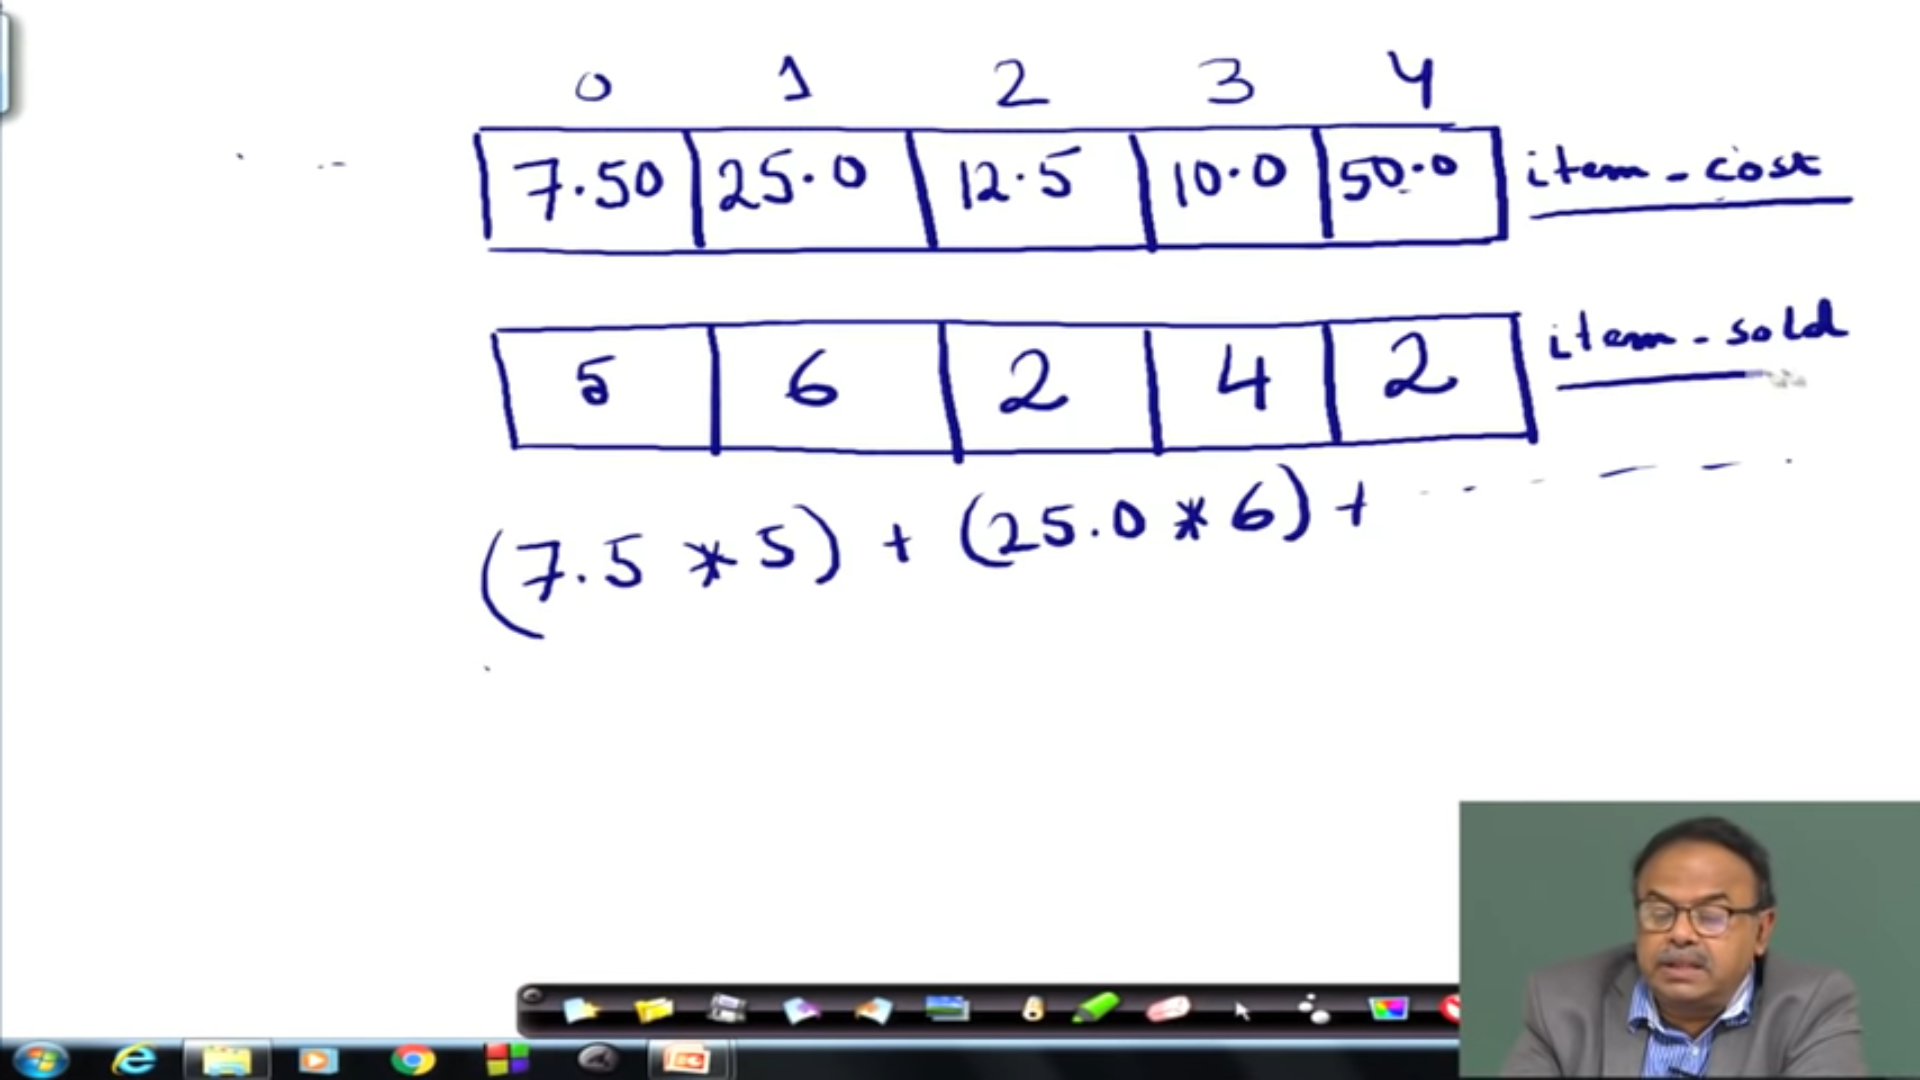 0 1 2 3 4
7.50 25.0 12.5 10.0 50.0 item_cost
5 6 2 4 2 item_sold
(7.5 * 5) + (25.0 * 6) + - - - - -